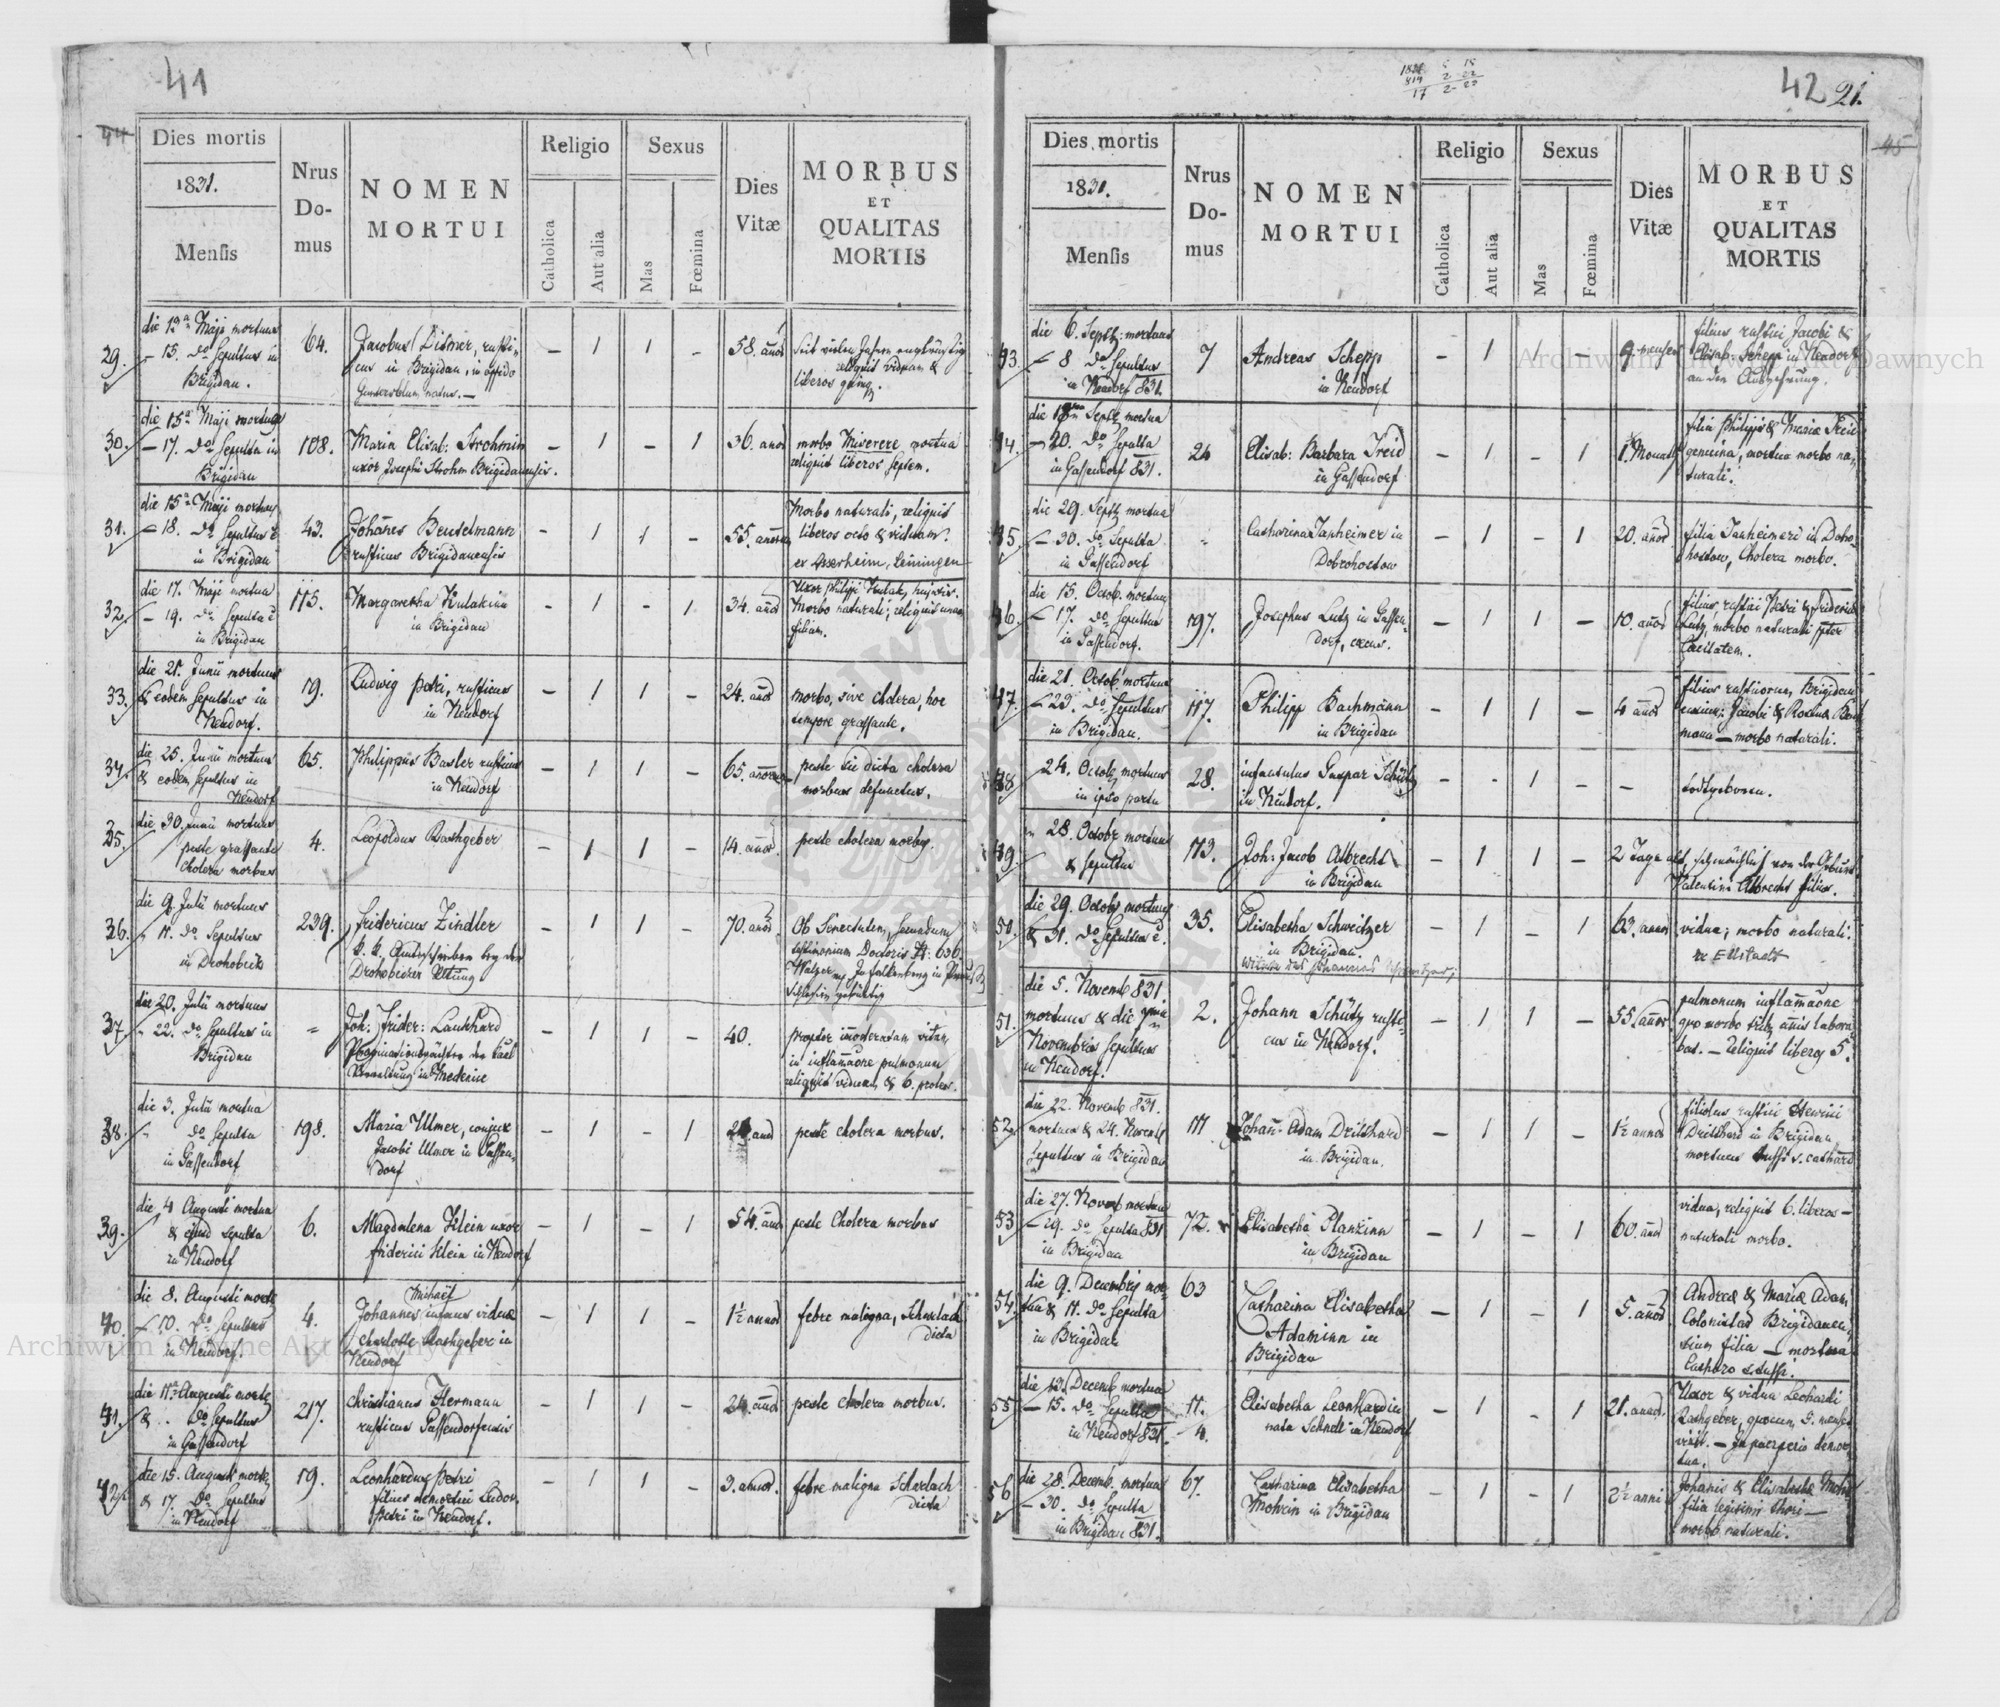 41
44
Dies mortis
1831.
Mensis
Nrus Do- mus
NOMEN MORTUI
Religio
Catholica
Aut alia
Sexus
Mas
Fœmina
Dies Vitæ
MORBUS
ET
QUALITAS
MORTIS
29.
die 13ª Maji mortuus
– 15. do Sepultus in
Brigidau.
64.
Jacobus Ditmer, rusti-
cus in Brigidau, in
natus. –
– 1 1 –
58. años
reliquit viduam &
liberos
30.
die 15ª Maji mortua
– 17. do Sepulta in
Brigidau
108.
Maria Elisab: Strohmin
uxor Josephi Strohm Brigidauensis.
– 1 – 1
36. años
morbo Miserere mortua
reliquit liberos septem.
31.
die 15ª Maji mortuus
– 18. do Sepultus ē
in Brigidau
43.
Johānes Beutelmann
rusticus Brigidauensis
– 1 1 –
55. añorum
Morbo naturali, reliquit
liberos octo & viduam.
ex Asserheim, Leiningen
32.
die 17. Maji mortua
– 19. do Sepulta ē
in Brigidau
115.
Margaretha Kulakin
in Brigidau
– 1 – 1
34. años
Uxor Philippi Kulak, hujatis.
Morbo naturali, reliquit unam
filiam.
33.
die 21. Junii mortuus
& eodem Sepultus in
Neudorf.
19.
Ludwig Petri, rusticus
in Neudorf
– 1 1 –
24. años
morbo, sive cholera, hoc
tempore grassante.
34.
die 25. Junii mortuus
& eodem Sepultus in
Neudorf
65.
Philippus Basler rusticus
in Neudorf
– 1 1 –
65. añorum
peste sic dicta cholera
morbus defunctus.
35.
die 30. Junii mortuus
peste grassante
cholera morbus
4.
Leopoldus Rashgeber
– 1 1 –
14. años.
peste cholera morbus.
36.
die 9. Julii mortuus
" 11. do Sepultus
in Drohobicz
239.
Fridericus Zindler
k. k. Amtsschreiber bey der
Drohobiczer
– 1 1 –
70. años
Ob Senectutem, secundum
testimonium Doctoris N: 636.
37.
die 20. Julii mortuus
" 22. do Sepultus in
Brigidau
"
Joh: Frider: Lankhard
in Medenice
– 1 1 –
40.
propter immoderatam vitam,
in inflammāone pulmonum
reliquit viduam, & 6. proles.
38.
die 3. Julii mortua
" do Sepulta
in Gassendorf
198.
Maria Ulmer, conjux
Jacobi Ulmer in Gassen-
dorf
– 1 – 1
peste cholera morbus.
39.
die 4 Augusti mortua
& ejusd Sepulta
in Neudorf
6.
Magdalena Klein uxor
Friderici Klein in Neudorf
– 1 – 1
54. años
peste Cholera morbus
40.
die 8. Augusti
– 10. do Sepultus
in Neudorf.
4.
Michaël
Johannes infans viduæ
Charlotte Rashgeber in
Neudorf
– 1 1 –
1½ annos
febre maligna, Scherlach
dicta
41.
die 11ª Augusti
& . do Sepultus
in Gassendorf
217.
Christianus Hermann
rusticus Gassendorfensis
– 1 1 –
24. años
peste cholera morbus.
42.
die 15. Augusti
& 17. do Sepultus
in Neudorf
19.
Leonhardus Petri
filius demortui Ludov.
Petri in Neudorf.
– 1 1 –
3. annor.
febre maligna Scherlach
dicta
42 21.
45
Dies mortis
1831.
Mensis
Nrus Do- mus
NOMEN MORTUI
Religio
Catholica
Aut alia
Sexus
Mas
Fœmina
Dies Vitæ
MORBUS
ET
QUALITAS
MORTIS
43.
die 6. Septb: mortuus
– 8 do Sepultus
in Neudorf 831.
7
Andreas Schepp
in Neudorf
– 1 1 –
9. menses
filius rustici Jacobi &
Elisab: Schepp in Neudorf
an der Auszehrung.
44.
Septb mortua
– 20. do Sepulta
in Gassendorf 831.
24
Elisab: Barbara Treid
in Gassendorf
– 1 – 1
1. Monath
filia Philippi & Mariæ Treid
genuina, mortua morbo na-
turali.
45.
die 29. Septb mortua
– 30. do Sepulta
in Gassendorf
"
Catharina Tanheimer in
Dobrohostow
– 1 – 1
20. años
filia Tanheimeri in Dobro-
hostow, Cholera morbo.
46.
die 15. Octob. mortuus
– 17. do Sepultus
in Gassendorf.
197.
Josephus Lutz in Gassen-
dorf, cæcus.
– 1 1 –
10. años
filius rustici Petri & Fridericæ
Lutz, morbo naturali
Cæcitatem.
47.
die 21. Octob. mortuus
– 23. do Sepultus
in Brigidau.
117.
Philipp Bachmann
in Brigidau
– 1 1 –
4 años
filius rusticorum Brigidau
ensium: Jacobi & Rosinæ Bach
mann – morbo naturali.
48
24. Octob mortuus
in ipso partu
28.
infantulus Gaspar Schütz
in Neudorf.
– – 1 – –
todtgeboren.
49.
" 28. Octobr mortuus
& Sepultus
113.
Joh: Jacob Albrecht
in Brigidau
– 1 1 –
2 Tage alt, schwächlich von der Geburt
Valentini Albrecht filius.
50.
die 29. Octob mortua
& 31. do Sepulta ē.
35.
Elisabetha Schweitzer
in Brigidau.
Witwe des Johannes Schweitzer;
– 1 – 1
63. annos
vidua; morbo naturali.
ex Ellstadt
51.
die 5. Novemb 831.
mortuus & die
Novembris Sepultus
in Neudorf.
2.
Johann Schütz rusti-
cus in Neudorf.
– 1 1 –
55. años
pulmonum inflammāone
quo morbo annis labora-
bat. – Reliquit liberos 5.
52.
die 22. Novemb 831.
mortuus & 24. Novemb
Sepultus in Brigidau
111
Johann Adam Dritthard
in Brigidau.
– 1 1 –
1½ annos
filiolus rustici Henrici
Dritthard in Brigidau,
mortuus tussi s. catharo
53.
die 27. Novemb mortua
– 29. do Sepulta 831
in Brigidau
72.
Elisabetha Planzinn
in Brigidau
– 1 – 1
60. años
vidua, reliquit 6. liberos –
naturali morbo.
54.
die 9. Decembris mor-
tua & 11. do Sepulta
in Brigidau
63
Catharina Elisabetha
Adaminn in
Brigidau
– 1 – 1
5. años
Andreæ & Mariæ Adam
Colonistas Brigidauen-
sium filia – mortua
Catharo & tussi.
55
die 13. Decemb mortua
– 15. do Sepulta
in Neudorf 831.
11.
4.
Elisabetha Leonhardin
nata Schnell in Neudorf
– 1 – 1
21. annos.
Uxor & vidua Leohardi
Rashgeber, quocum 5. menses
vixit. – In puerperio demor-
tua.
56
die 28. Decemb. mortua
– 30. do Sepulta
in Brigidau 831.
67.
Catharina Elisabetha
Mohrin in Brigidau
– 1 – 1
2½ anni
Johanis & Elisabethæ Mohr
filia legitimi thori –
morbo naturali.
Archiwum Główne Akt Dawnych
Archiwum Główne Akt Dawnych